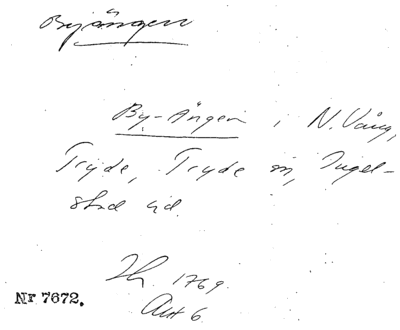 Byängen
By-Ängen i N. Vång,
Tryde, Tryde sn, Ingel-
stad hd.
Sk. 1769.
Akt 6
Nr 7672.